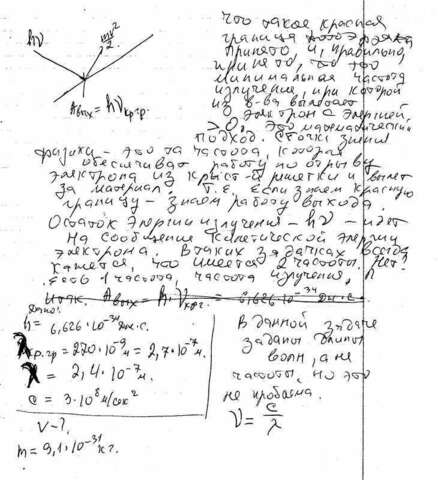 что такое красная
граница
Принято, и, правильно,
принято, что это
минимальная частота
излучения, при которой
из в-ва вылетает
электрон с энергией
> 0. Это математический
подход. С точки зрения
hν
mv²/2
Aвых = hνкр.гр.
физики - это та частота, которая
обеспечивает работу по отрыву
электрона из крист-й решетки и вылет
за материал. Т.е. если знаем красную
границу - знаем работу выхода.
Остаток энергии излучения - hν - идет
на сообщение кинетической энергии
электрона. В таких задачах всегда
кажется, что имеется 2 частоты. Нет!
Есть 1 частота, частота излучения,
Итак. Aвых = h·νкр.г. = 6,626·10⁻³⁴ Дж·с.
Дано:
h = 6,626·10⁻³⁴ Дж.с.
λкр.гр = 270·10⁻⁹м = 2,7·10⁻⁷м.
λ = 2,4·10⁻⁷м.
c = 3·10⁸ м/сек²
V - ?
m = 9,1·10⁻³¹ кг.
В данной задаче
заданы длины
волн, а не
частоты, но это
не проблема.
ν = c/λ